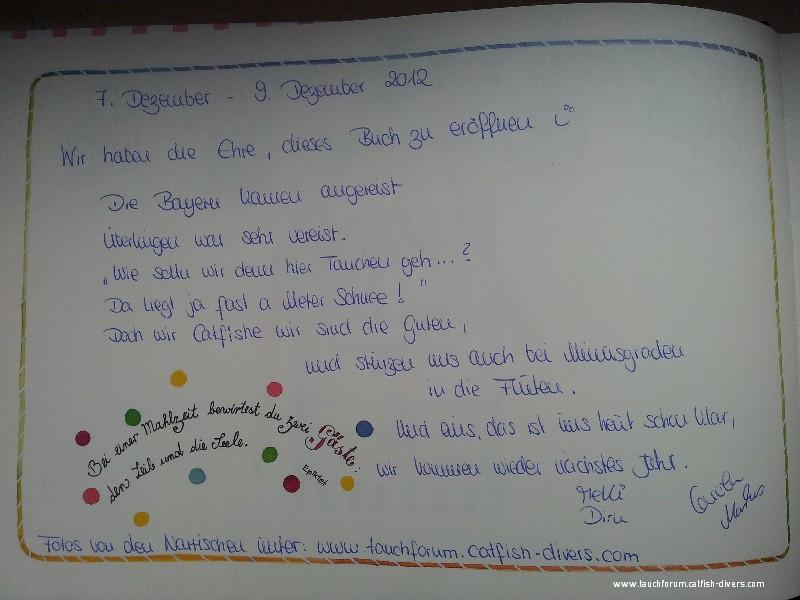 7. Dezember - 9. Dezember 2012
Wir haben die Ehre, dieses Buch zu eröffnen
Die Bayern kamen angereist
Überlingen war sehr vereist.
„Wie solln wir denn hier Tauchen geh...?
Da liegt ja fast a Meter Schnee!"
Doch wir Catfishe wir sind die Guten,
und stürzen uns auch bei Minusgraden
in die Fluten.
Und eins, das ist uns heut schon klar,
wir kommen wieder nächstes Jahr.
Melli
Dirk
Carolin
Markus
Bei einer Mahlzeit bewirtest du zwei Gäste:
den Leib und die Seele.
Epiktet
Fotos von den Narrischen unter: www.tauchforum.catfish-divers.com
www.tauchforum.catfish-divers.com